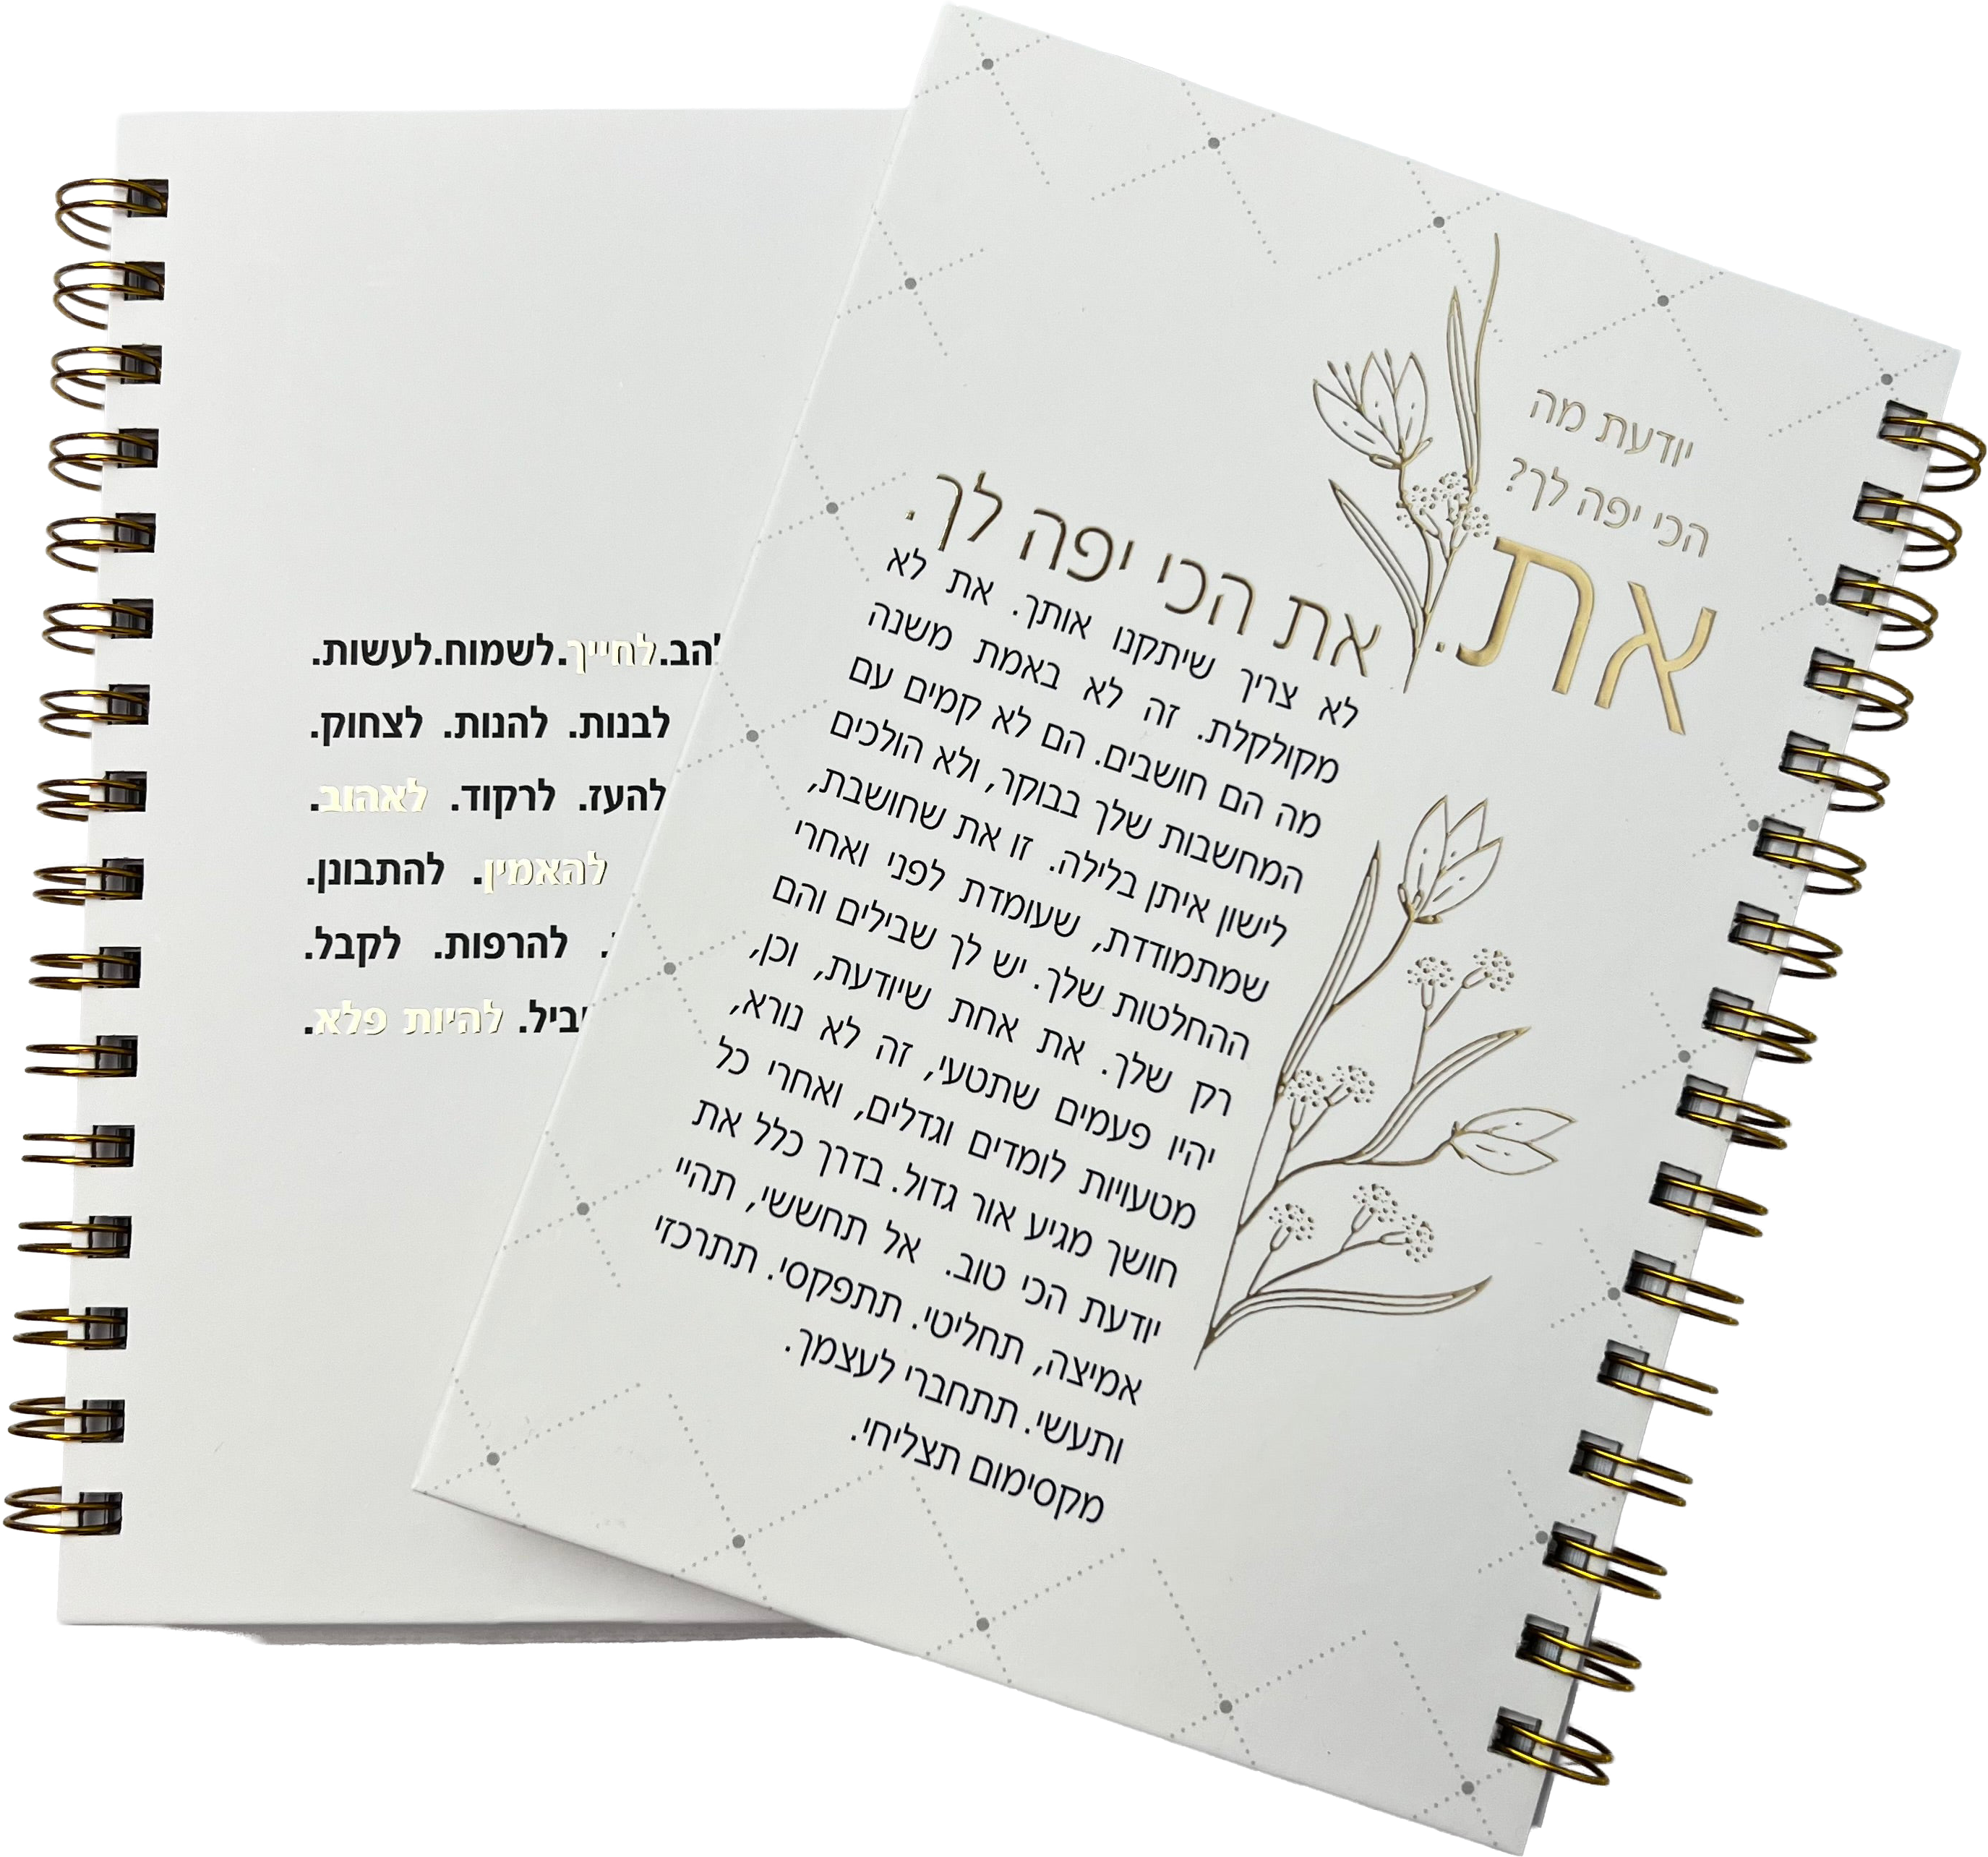 יודעת מה
הכי יפה לך?
את.
את הכי יפה לך.
לא צריך שיתקנו אותך. את לא
מקולקלת. זה לא באמת משנה
מה הם חושבים. הם לא קמים עם
המחשבות שלך בבוקר, ולא הולכים
לישון איתן בלילה. זו את שחושבת,
שמתמודדת, שעומדת לפני ואחרי
ההחלטות שלך. יש לך שבילים והם
רק שלך. את אחת שיודעת, וכן,
יהיו פעמים שתטעי, זה לא נורא,
מטעויות לומדים וגדלים, ואחרי כל
חושך מגיע אור גדול. בדרך כלל את
יודעת הכי טוב. אל תחששי, תהיי
אמיצה, תחליטי. תתפקסי. תתרכזי
ותעשי. תתחברי לעצמך.
מקסימום תצליחי.
לחייך.לשמוח.לעשות.
לבנות. להנות. לצחוק.
להעז. לרקוד. לאהוב.
להאמין. להתבונן.
להרפות. לקבל.
להיות פלא.